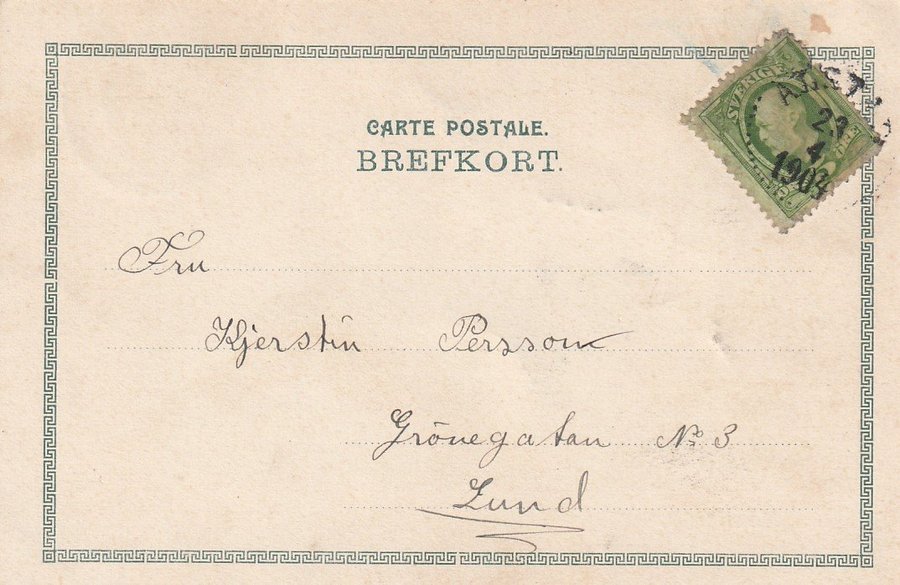 CARTE POSTALE.
BREFKORT.
SVERIGE
23
4
1903
Fru
Kjerstin Persson
Grönegatan No 3
Lund